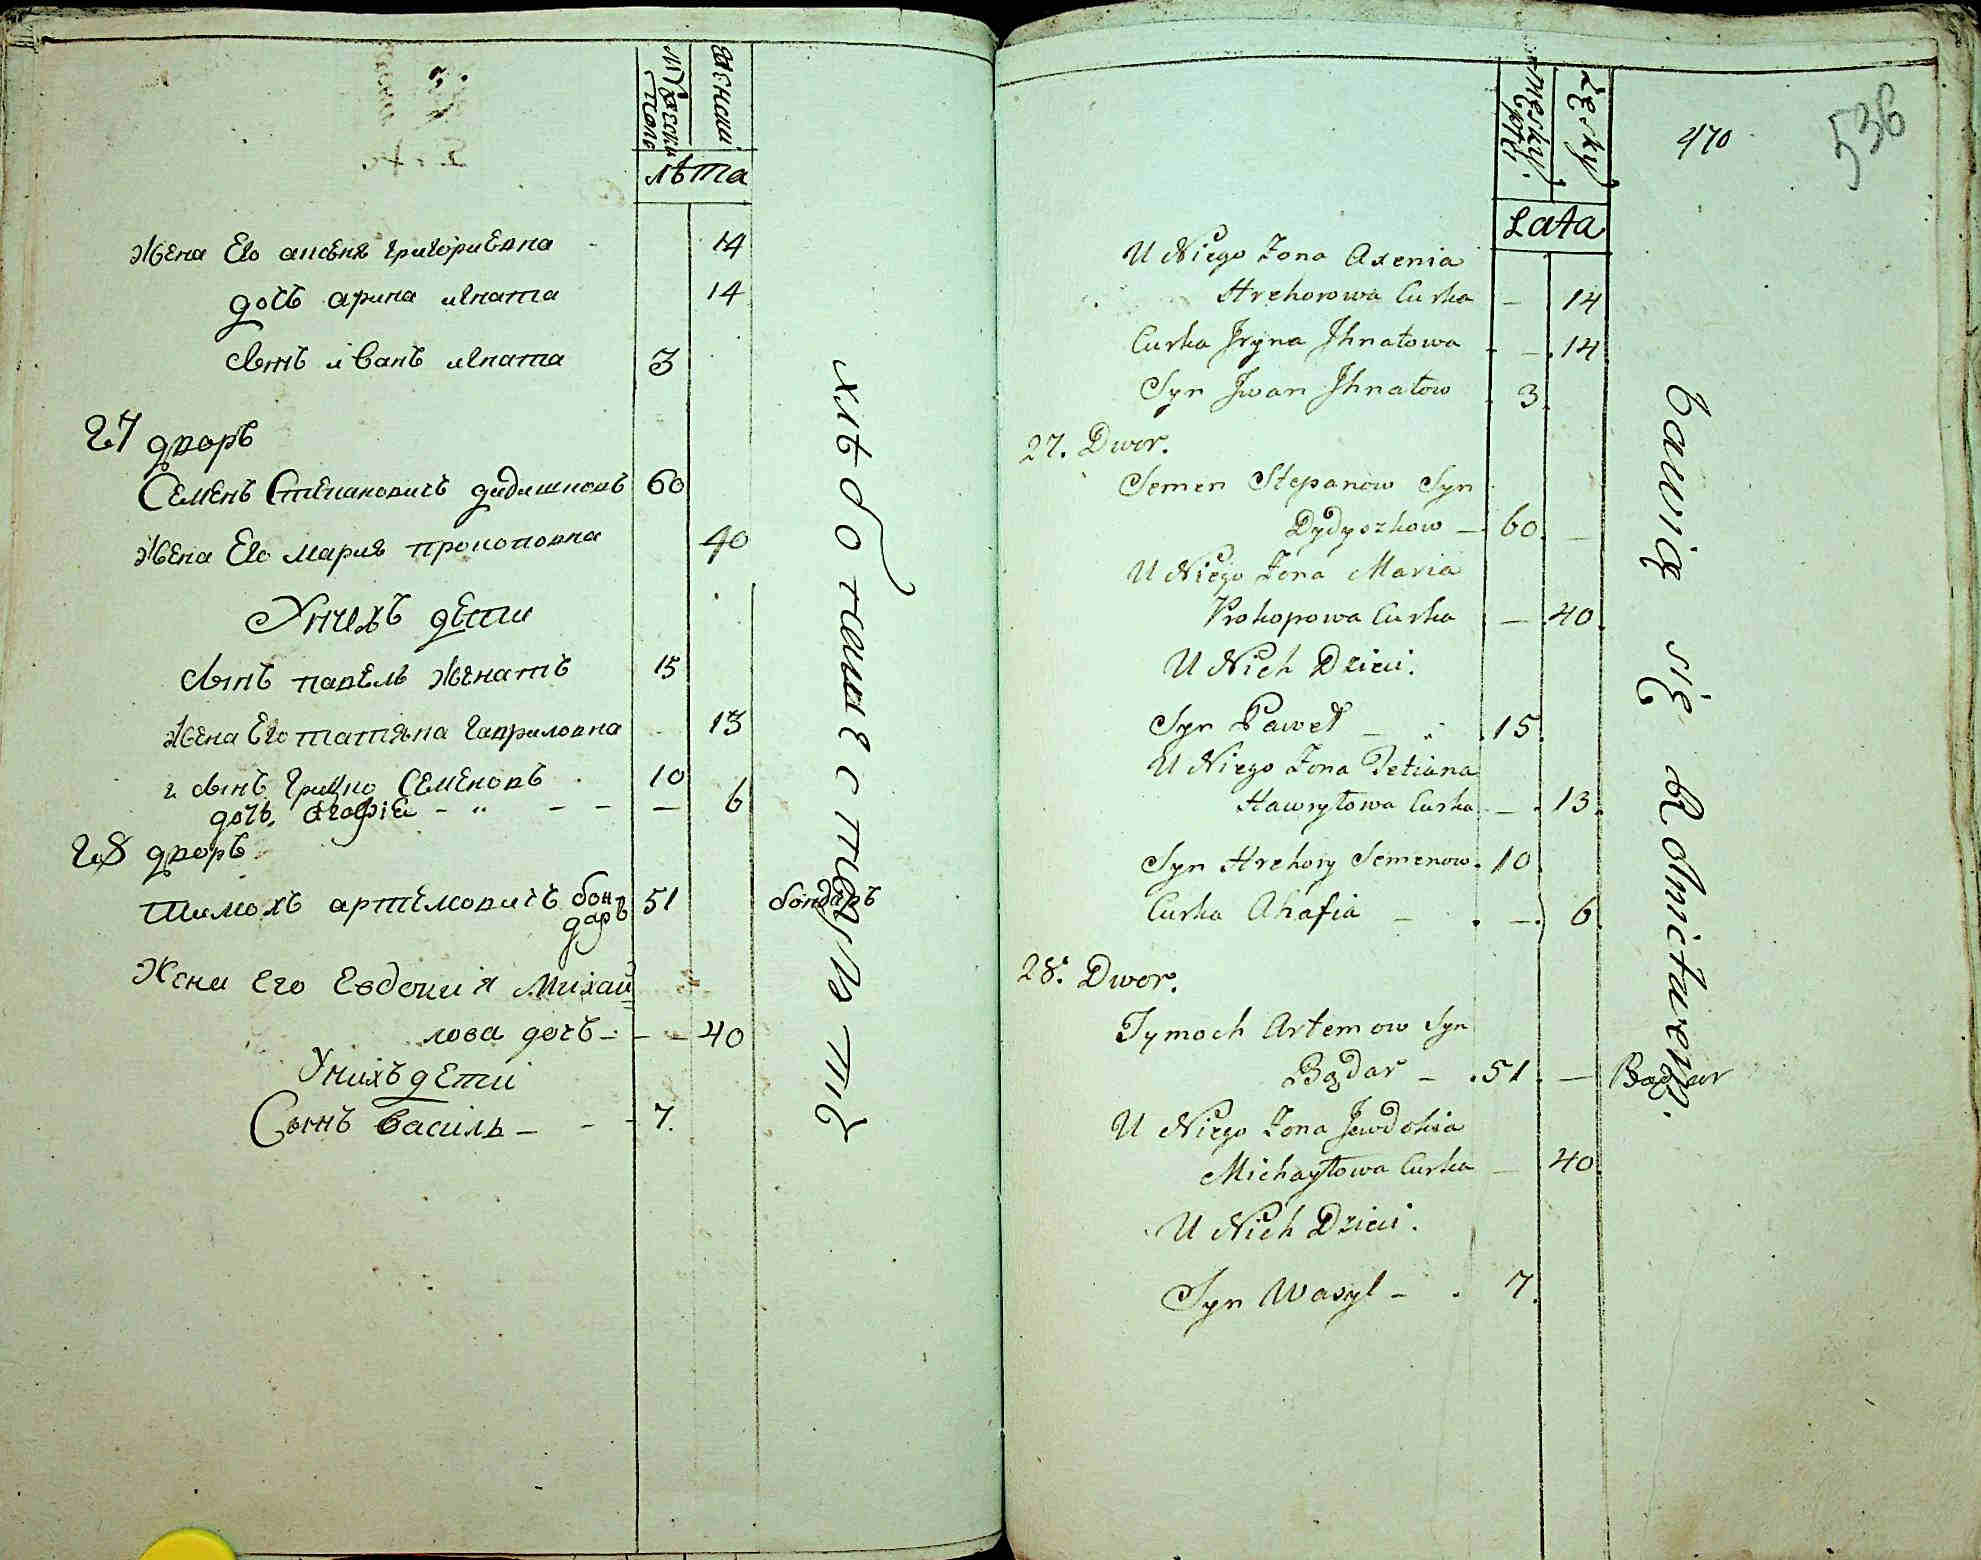 мужеска
полъ
женски
лѣта
жена Его аксеня григориевна 14
дочь арина игната 14
сынъ иванъ игната 3
27 дворъ
Семенъ Степановичъ дидишковъ 60
жена Его мария прокоповна 40
У нихъ дети
сынъ павелъ женатъ 15
жена Его татяна гавриловна 13
2 сынъ грицко Семеновъ 10
дочь, агафіе - " - - - 6
28 дворъ
Тимохъ артемовичъ бон 51 бондаръ
даръ
Жена Его Евдокия Михай
лова дочь - - - 40
У нихъ дети
Сынъ василь - - - 7.
хлѣбопашествують
męsky
płci.
żęsky
Lata
470
536
U Niego Zona Axenia
Hrehorowa Curka - 14
Curka Jryna Jhnatowa - - 14
Syn Jwan Jhnatow 3.
27. Dwor.
Semen Stepanow Syn
Dydyszkow - 60. -
U Niego Zona Maria
Prokopowa Curka - 40.
U Nich Dzieci.
Syn Paweł - . 15.
U Niego Zona Tetiana
Hawryłowa Curka - 13.
Syn Hrehory Semenow. 10
Curka Ahafia - . - 6.
28. Dwor.
Tymoch Artemow Syn
Bądar - . 51. - Bądar
U Niego Zona Jewdokia
Michayłowa Curka - 40.
U Nich Dzieci.
Syn Wasyl - . 7.
bawią się Rolnictwem.